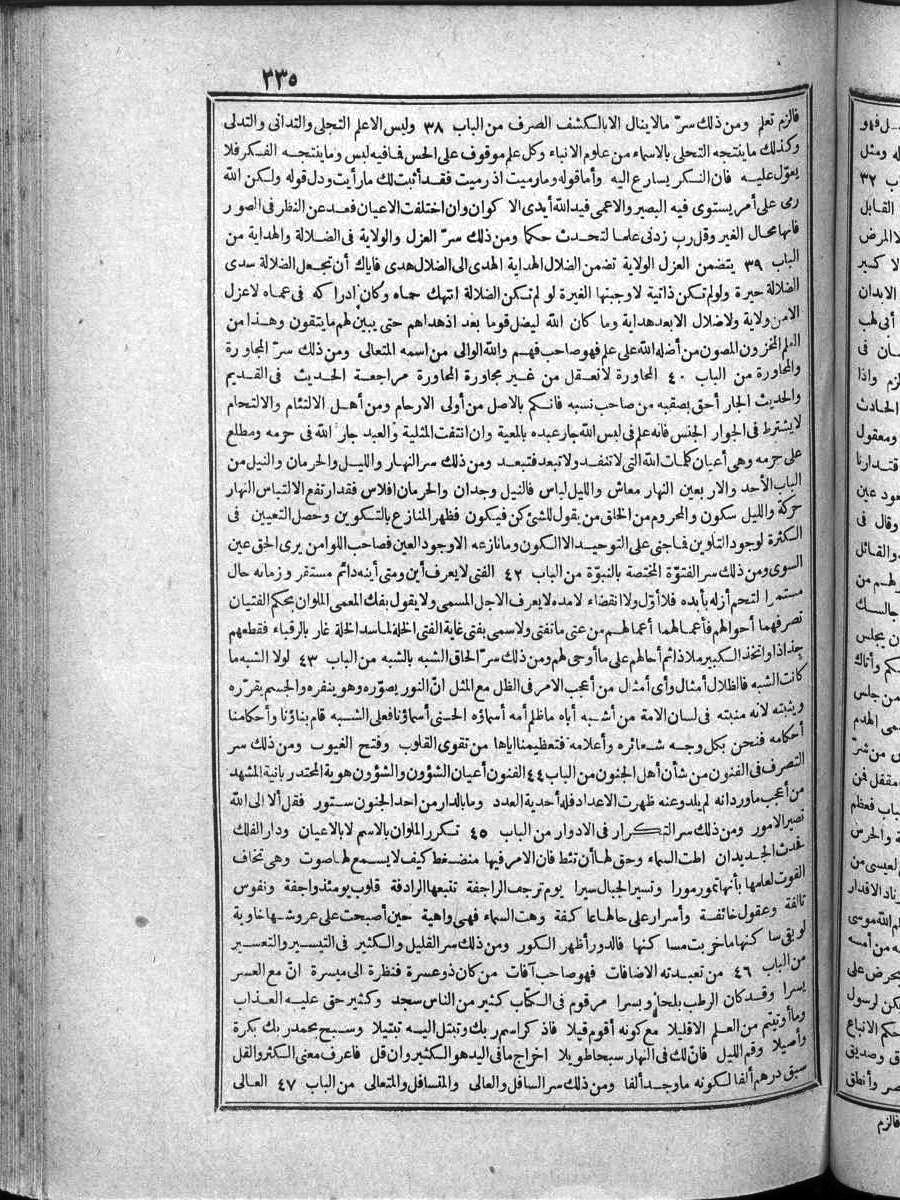 ٣٣٥
فالزم تعلم ومن ذلك سرّ مالا ينال الا بالكشف الصرف من الباب ٣٨ وليس الا علم التجلى والتدانى والتدلى
وكذلك ما ينتجه التحلى بالاسماء من علوم الانباء وكل علم موقوف على الحس فما فيه لبس وما ينتجه الفكر فلا
يعوّل عليه فان النكر يسارع اليه وأما قوله وما رميت اذ رميت فقد أثبت لك ما رأيت ودل قوله ولكن الله
رمى على أمر يستوى فيه البصير والاعمى فيد الله أيدى الا كوان وان اختلفت الاعيان فعد عن النظر فى الصور
فانها محال الغير وقل رب زدنى علما لتحدث حكما ومن ذلك سرّ العزل والولاية فى الضلالة والهداية من
الباب ٣٩ يتضمن العزل الولاية تضمن الضلال الهداية الهدى الى الضلال هدى فاياك أن تجعل الضلالة سدى
الضلالة حيرة ولو لم تكن ذاتية لاوجبتها الغيرة لو لم تكن الضلالة انتهك حماه وكان ادرا كه فى عماه لا عزل
الا من ولاية ولا ضلال الا بعد هداية وما كان الله ليضل قوما بعد اذ هداهم حتى يبين لهم ما يتقون وهذا من
العلم المخزون المصون من أضله الله على علم فهو صاحب فهم والله الوالى من اسمه المتعالى ومن ذلك سرّ المجاورة
والمحاورة من الباب ٤٠ المحاورة لا تعقل من غير مجاورة المحاورة مراجعة الحديث فى القديم
والحديث الجار أحق بصقبه من صاحب نسبه فانكم بالاصل من أولى الارحام ومن أهل الالتئام والالتحام
لا يشترط فى الجوار الجنس فانه علم فى لبس الله جار عبده بالمعية وان انتفت المثلية والعبد جار الله فى حرمه ومطلع
على حرمه وهى أعيان كلمات الله التى لا تنفد ولا تبعد فتبعد ومن ذلك سر النهار والليل والحرمان والنيل من
الباب الأحد والاربعين النهار معاش والليل لباس فالنيل وجدان والحرمان افلاس فقد ارتفع الالتباس النهار
حركة والليل سكون والمحروم من الخلق من يقول للشئ كن فيكون فظهر المنازع بالتكوين وحصل التعيين فى
الكثرة لوجود التلوين فما جنى على التوحيد الا الكون وما نازعه الا وجود العين فصاحب اللوا من يرى الحق عين
السوى ومن ذلك سر الفتوّة المختصة بالنبوّة من الباب ٤٢ الفتى لا يعرف أين ومتى أينه دائم مستقر وزمانه حال
مستمرا لتحم أزله بأبده فلا أوّل ولا انقضاء لامده لا يعرف الاجل المسمى ولا يقول بفك المعمى الملوان بحكم الفتيان
تصرفهما أحوالهم فأعمالهما أعمالهم من عتى ما تفتى ولا سمى بفتى غاية الفتى الخلة لما سد الخلة غار بالرقباء فقطعهم
جذاذا واتخذ الكبير ملاذا ثم أحالهم على ما أوحى لهم ومن ذلك سرّ الحاق الشبه بالشبه من الباب ٤٣ لولا الشبه ما
كانت الشبه فالظلال أمثال وأى أمثال من أعجب الامر فى الظل مع المثل انّ النور يصوّره وهو ينفره والجسم يقرّره
ويثبته لانه منبته فى لسان الامة من أشبه أباه ما ظلم أمه أسماؤه الحسنى أسماؤنا فعلى الشبه قام بناؤنا وأحكامنا
أحكامه فنحن بكل وجه شعائره وأعلامه فتعظيمنا اياها من تقوى القلوب وفتح الغيوب ومن ذلك سر
التصرف فى الفنون من شأن أهل الجنون من الباب ٤٤ الفنون أعيان الشؤون والشؤون هوية المحتد ربانية المشهد
من أعجب ما ورد انه لم يلد وعنه ظهرت الاعداد فله أحدية العدد وما بالدار من احد الجنون ستور فقل ألا الى الله
تصير الامور ومن ذلك سر التكرار فى الادوار من الباب ٤٥ تكرر الملوان بالاسم لا بالاعيان ودار الفلك
فحدث الجديدان اطت السماء وحق لها أن تئط فان الامر فيها منضغط كيف لا يسمع لها صوت وهى تخاف
الفوت لعلمها بأنها تمور مورا وتسير الجبال سيرا يوم ترجف الراجفة تتبعها الرادفة قلوب يومئذ واجفة ونفوس
تالفة وعقول خائفة وأسرار على حالها عا كفة وهت السماء فهى واهية حين أصبحت على عروشها خاوية
لو بقى سا كنها ما خربت مسا كنها فالدور أظهر الكور ومن ذلك سر القليل والكثير فى التيسير والتعسير
من الباب ٤٦ من تعبدته الاضافات فهو صاحب آفات من كان ذو عسرة فنظرة الى ميسرة انّ مع العسر
يسرا وقد كان الرطب بلحا وبسرا مرقوم فى الكتاب كثير من الناس سجد وكثير حق عليه العذاب
وما أوتيتم من العلم الا قليلا مع كونه أقوم قيلا فاذ كر اسم ربك وتبتل اليه تبتيلا وسبح بحمد ربك بكرة
وأصيلا وقم الليل فانّ لك فى النهار سبحا طويلا اخراج ما فى اليد هو الكثير وان قل فاعرف معنى الكثر والقل
سبق درهم ألفا لكونه ما وجد ألفا ومن ذلك سر السافل والعالى والمتسافل والمتعالى من الباب ٤٧ العالى